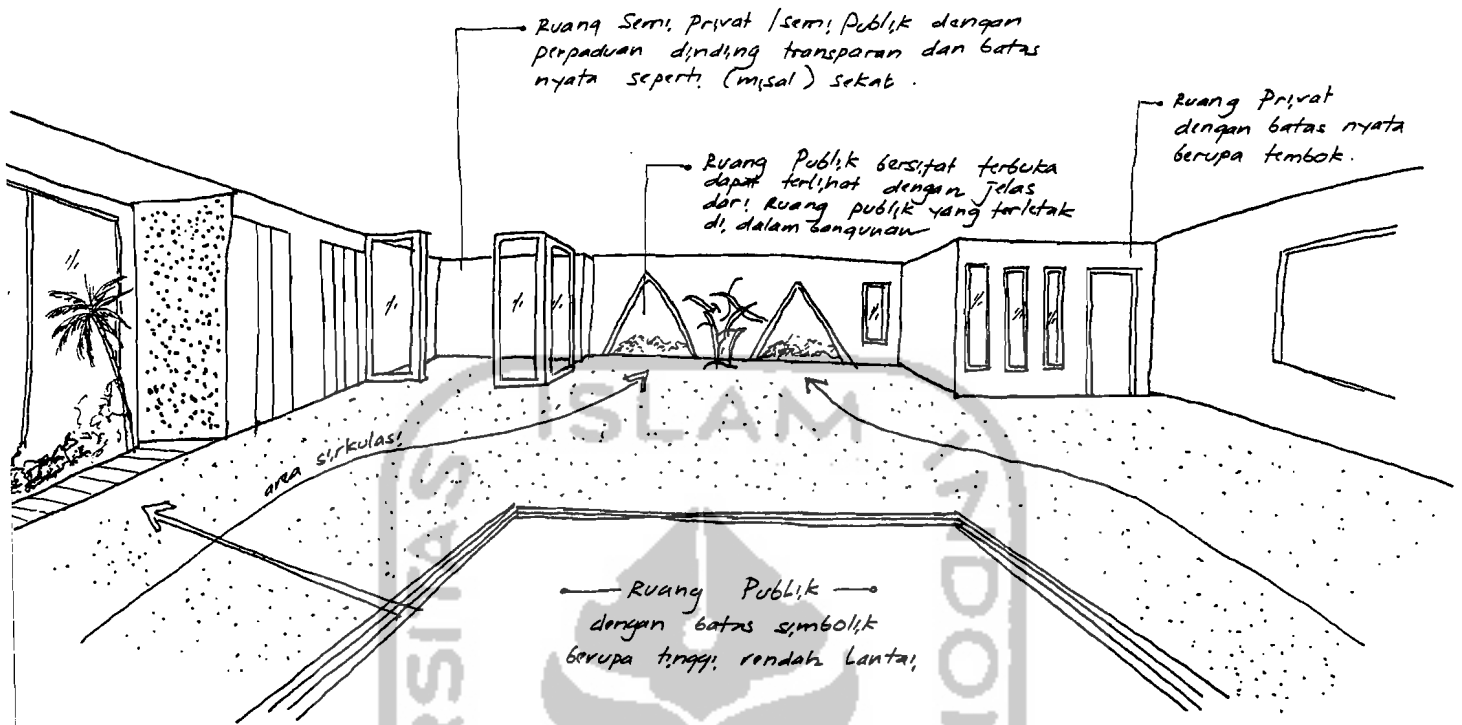 Ruang Semi Privat / semi Publik dengan
perpaduan dinding transparan dan batas
nyata seperti (misal) sekat .
Ruang Privat
dengan batas nyata
berupa tembok.
Ruang Publik bersifat terbuka
dapat terlihat dengan jelas
dari Ruang publik yang terletak
di dalam bangunan
area sirkulasi
Ruang Publik
dengan batas simbolik
berupa tinggi rendah Lantai
ISLAM
RSITAS
INDO